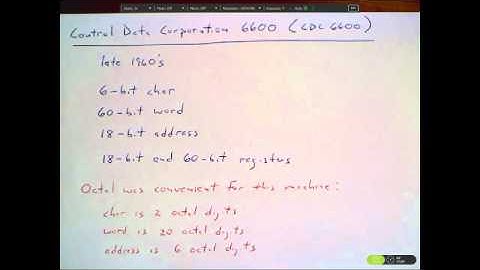 Control Data Corporation 6600 (CDC 6600)
late 1960's
6-bit char
60-bit word
18-bit address
18-bit and 60-bit registers
Octal was convenient for this machine:
char is 2 octal digits
word is 20 octal digits
address is 6 octal digits